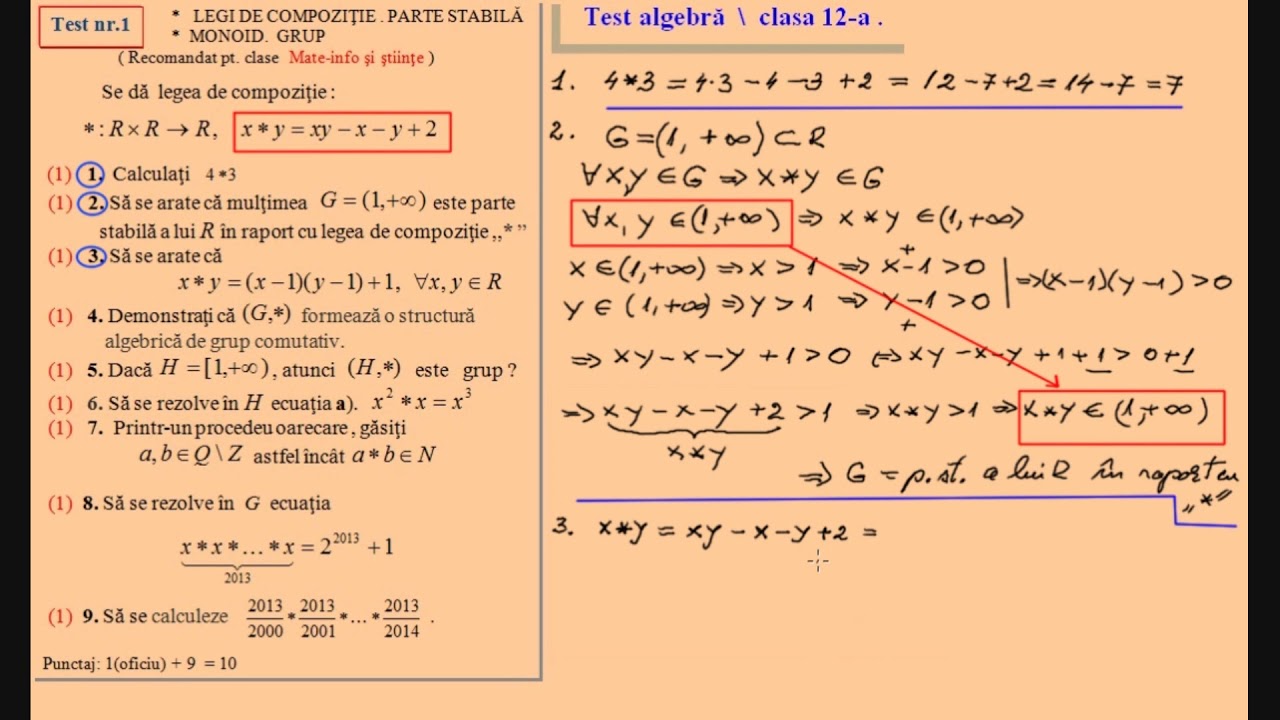 Test nr.1
* LEGI DE COMPOZIŢIE . PARTE STABILĂ
* MONOID. GRUP
( Recomandat pt. clase Mate-info şi ştiinţe )
Se dă legea de compoziţie :
* : R × R → R, x * y = xy − x − y + 2
(1) 1. Calculaţi 4 * 3
(1) 2. Să se arate că mulţimea G = (1,+∞) este parte
stabilă a lui R în raport cu legea de compoziţie ,,* ”
(1) 3. Să se arate că
x * y = (x − 1)(y − 1) + 1, ∀x, y ∈ R
(1) 4. Demonstraţi că (G,*) formează o structură
algebrică de grup comutativ.
(1) 5. Dacă H = [1,+∞) , atunci (H,*) este grup ?
(1) 6. Să se rezolve în H ecuaţia a). x² * x = x³
(1) 7. Printr-un procedeu oarecare , găsiţi
a, b ∈ Q \ Z astfel încât a * b ∈ N
(1) 8. Să se rezolve în G ecuaţia
x * x * … * x = 2²⁰¹³ + 1
2013
(1) 9. Să se calculeze 2013/2000 * 2013/2001 * … * 2013/2014 .
Punctaj: 1(oficiu) + 9 = 10
Test algebră \ clasa 12-a .
1. 4*3 = 4·3 − 4 − 3 + 2 = 12 − 7 + 2 = 14 − 7 = 7
2. G = (1, +∞) ⊂ R
∀x,y ∈ G ⇒ x*y ∈ G
∀x, y ∈ (1,+∞) ⇒ x*y ∈ (1,+∞)
x ∈ (1,+∞) ⇒ x > 1 ⇒ x − 1 > 0 | ⇒ (x−1)(y−1) > 0
+
y ∈ (1,+∞) ⇒ y > 1 ⇒ y − 1 > 0
+
⇒ xy − x − y + 1 > 0 ⇔ xy − x − y + 1 + 1 > 0 + 1
⇒ xy − x − y + 2 > 1 ⇒ x*y > 1 ⇒ x*y ∈ (1,+∞)
x*y
⇒ G = p.st. a lui R în raport cu
„*”
3. x*y = xy − x − y + 2 =